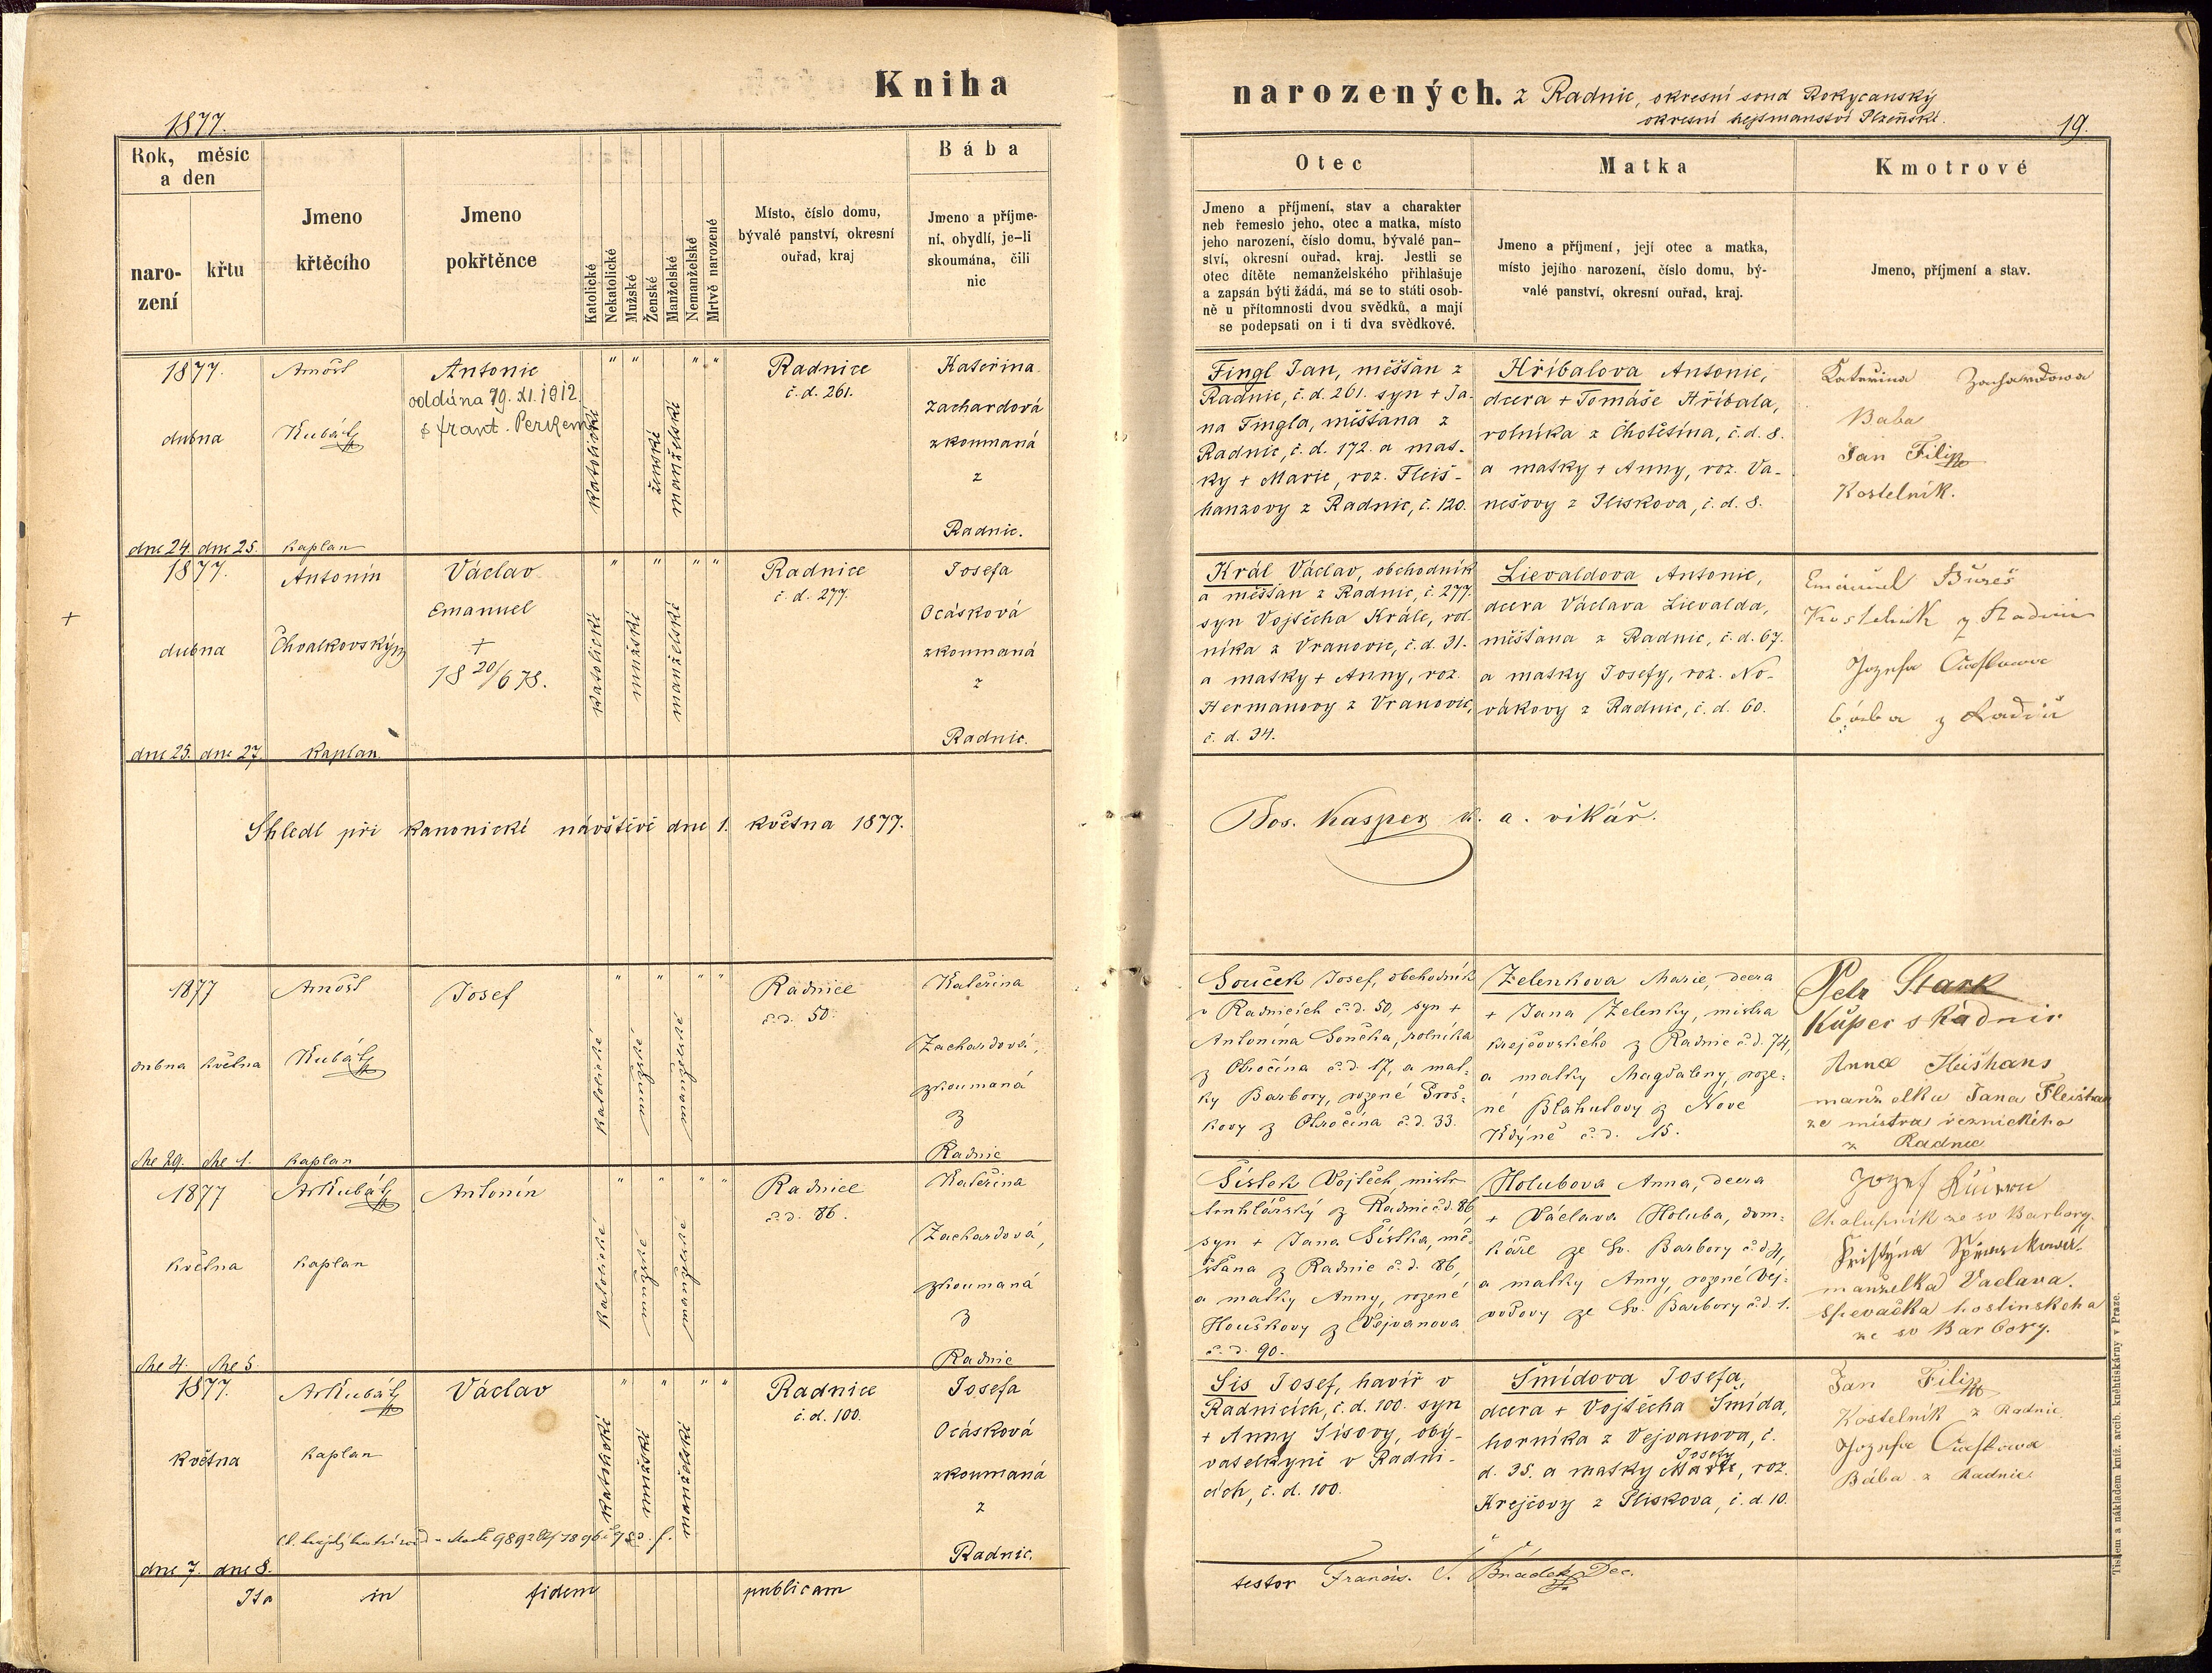 Kniha
narozených. z Radnic, okresní soud Rokycanský
okresní hejtmanství Plzeňské.
1877.
19.
Rok, měsíc
a den
naro-
zení
křtu
Jmeno
křtěcího
Jmeno
pokřtěnce
Katolické
Nekatolické
Mužské
Ženské
Manželské
Nemanželské
Mrtvě narozené
Místo, číslo domu,
bývalé panství, okresní
ouřad, kraj
Bába
Jmeno a příjme-
ní, obydlí, je-li
skoumána, čili
nic
Otec
Jmeno a příjmení, stav a charakter
neb řemeslo jeho, otec a matka, místo
jeho narození, číslo domu, bývalé pan-
ství, okresní ouřad, kraj. Jestli se
otec dítěte nemanželského přihlašuje
a zapsán býti žádá, má se to státi osob-
ně u přítomnosti dvou svědků, a mají
se podepsati on i ti dva svědkové.
Matka
Jmeno a příjmení, její otec a matka,
místo jejího narození, číslo domu, bý-
valé panství, okresní ouřad, kraj.
Kmotrové
Jmeno, příjmení a stav.
1877.
dubna
dne 24. dne 25.
Arnošt
Kubát
kaplan
Antonie
oddána 29. XI. 1912
s frant. Perkem
katolické
" "
ženské
manželské
" "
Radnice
č. d. 261.
Kateřina
Zachardová
zkoumaná
z
Radnic.
Fingl Jan, měšťan z
Radnic, č. d. 261. syn + Ja-
na Fingla, měšťana z
Radnic, č. d. 172. a mat-
ky + Marie, roz. Fleiš-
hanzovy z Radnic, č. 120.
Hříbalova Antonie,
dcera + Tomáše Hříbala,
rolníka z Chotětína, č. d. 8.
a matky + Anny, roz. Va-
nešovy z Plískova, č. d. 8.
Kateřina Zachardowa
Baba
Jan Filip
Kostelník.
1877.
dubna
dne 25. dne 27.
Antonín
Chvalkovský
kaplan
Václav
Emanuel
+
18 20/6 78.
katolické
"
mužské
"
manželské
" "
Radnice
č. d. 277.
Josefa
Ocásková
zkoumaná
z
Radnic.
Král Václav, obchodník
a měšťan z Radnic, č. 277.
syn Vojtěcha Krále, rol-
níka z Vranovic, č. d. 31.
a matky + Anny, roz.
Heřmanovy z Vranovic,
č. d. 34.
Lievaldova Antonie,
dcera Václava Lievalda,
měšťana z Radnic, č. d. 67.
a matky Josefy, roz. No-
vákovy z Radnic, č. d. 60.
Emánuel Bureš
Kostelnik z Radnic
Jozefa
bába z Radnic
Shledl při kanonické návštěvě dne 1. května 1877.
Jos. Kasper k. a. vikář.
1877
dubna května
dne 29. dne 1.
Arnošt
Kubát
kaplan
Josef
katolické
"
mužské
"
manželské
" "
Radnice
č. d. 50.
Kateřina
Zachardová,
zkoumaná
z
Radnic
Souček Josef, obchodník
v Radnicích č. d. 50, syn +
Antonína Součka, rolníka
z Obročína č. d. 17, a mat-
ky Barbory, rozené Broš-
kovy z Obročína č. d. 33.
Zelenkova Marie, dcera
+ Jana Zelenky, mistra
krejčovského z Radnic č. d. 74,
a matky Magdaleny, roze-
né Blahutovy z Nové
Kdýně č. d. 15.
Petr Stark
Kupec s Radnic
Anna Fleishans
manželka Jana Fleishan
ze mistra řeznického
z Radnic
1877
května
dne 4. dne 5.
Ar Kubát
kaplan
Antonín
katolické
"
mužské
"
manželské
" "
Radnice
č. d. 86.
Kateřina
Zachardová,
zkoumaná
z
Radnic
Šístek Vojtěch, mistr
truhlářský z Radnic č. d. 86,
syn + Jana Šístka, mě-
šťana z Radnic č. d. 86,
a matky Anny, rozené
Houškovy z Vejvanova
č. d. 90.
Holubova Anna, dcera
+ Václava Holuba, dom-
káře ze Sv. Barbory č. d. 4,
a matky Anny, rozené Vej-
vodovy ze Sv. Barbory č. d. 1.
Jozef
Chalupník ze sv Barbory.
Kristýna
manželka Vaclava.
Spevačka hostinskeho
ze sv Barbory.
1877.
května
dne 7. dne 8.
Ar Kubát
kaplan
Václav
katolické
"
mužské
"
manželské
" "
Radnice
č. d. 100.
Josefa
Ocásková
zkoumaná
z
Radnic.
Sis Josef, havíř v
Radnicích, č. d. 100. syn
+ Anny Sisovy, oby-
vatelkyně v Radni-
cích, č. d. 100.
Šmídova Josefa,
dcera + Vojtěcha Šmída,
horníka z Vejvanova, č.
d. 35. a matky Josefy, roz.
Krejčovy z Plískova, č. d. 10.
Jan Filip
Kostelník z Radnic
Jozefa
Bába z Radnic
Ita in fidem publicam
testor Francis. S. Hnádek Dec.
Tiskem a nákladem kníž. arcib. kněhtiskárny v Praze.